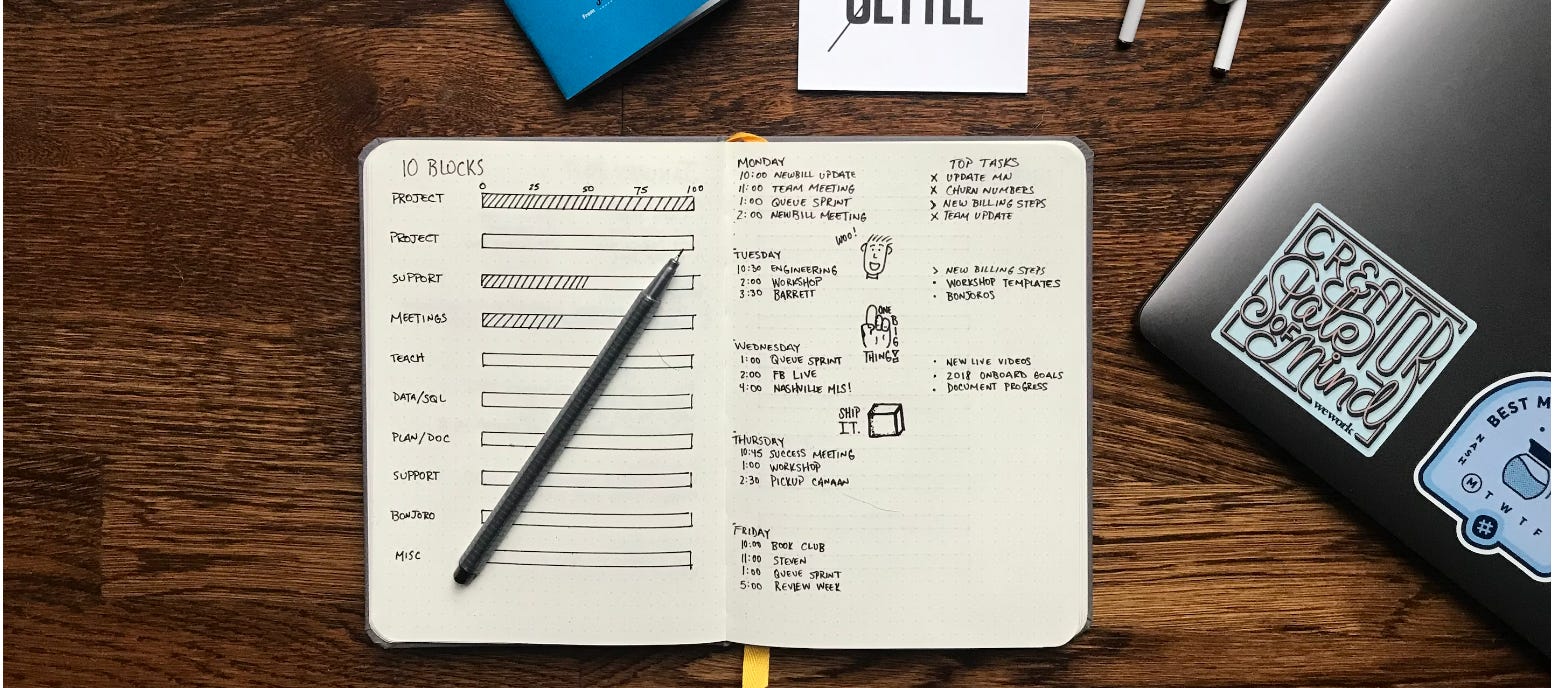 From
SETTLE
10 BLOCKS
0 25 50 75 100
PROJECT
PROJECT
SUPPORT
MEETINGS
TEACH
DATA/SQL
PLAN/DOC
SUPPORT
BONJORO
MISC
MONDAY
10:00 NEWBILL UPDATE
11:00 TEAM MEETING
1:00 QUEUE SPRINT
2:00 NEWBILL MEETING
WOO!
TUESDAY
10:30 ENGINEERING
2:00 WORKSHOP
3:30 BARRETT
ONE
BIG
THING!
WEDNESDAY
1:00 QUEUE SPRINT
2:00 FB LIVE
4:00 NASHVILLE MLS!
SHIP
IT.
THURSDAY
10:45 SUCCESS MEETING
1:00 WORKSHOP
2:30 PICKUP CANAAN
FRIDAY
10:00 BOOK CLUB
11:00 STEVEN
1:00 QUEUE SPRINT
5:00 REVIEW WEEK
TOP TASKS
X UPDATE MN
X CHURN NUMBERS
> NEW BILLING STEPS
X TEAM UPDATE
> NEW BILLING STEPS
• WORKSHOP TEMPLATES
• BONJOROS
• NEW LIVE VIDEOS
• 2018 ONBOARD GOALS
• DOCUMENT PROGRESS
CREATOR
State
OF
Mind
wework
BEST M
NASH
M T W T F
#